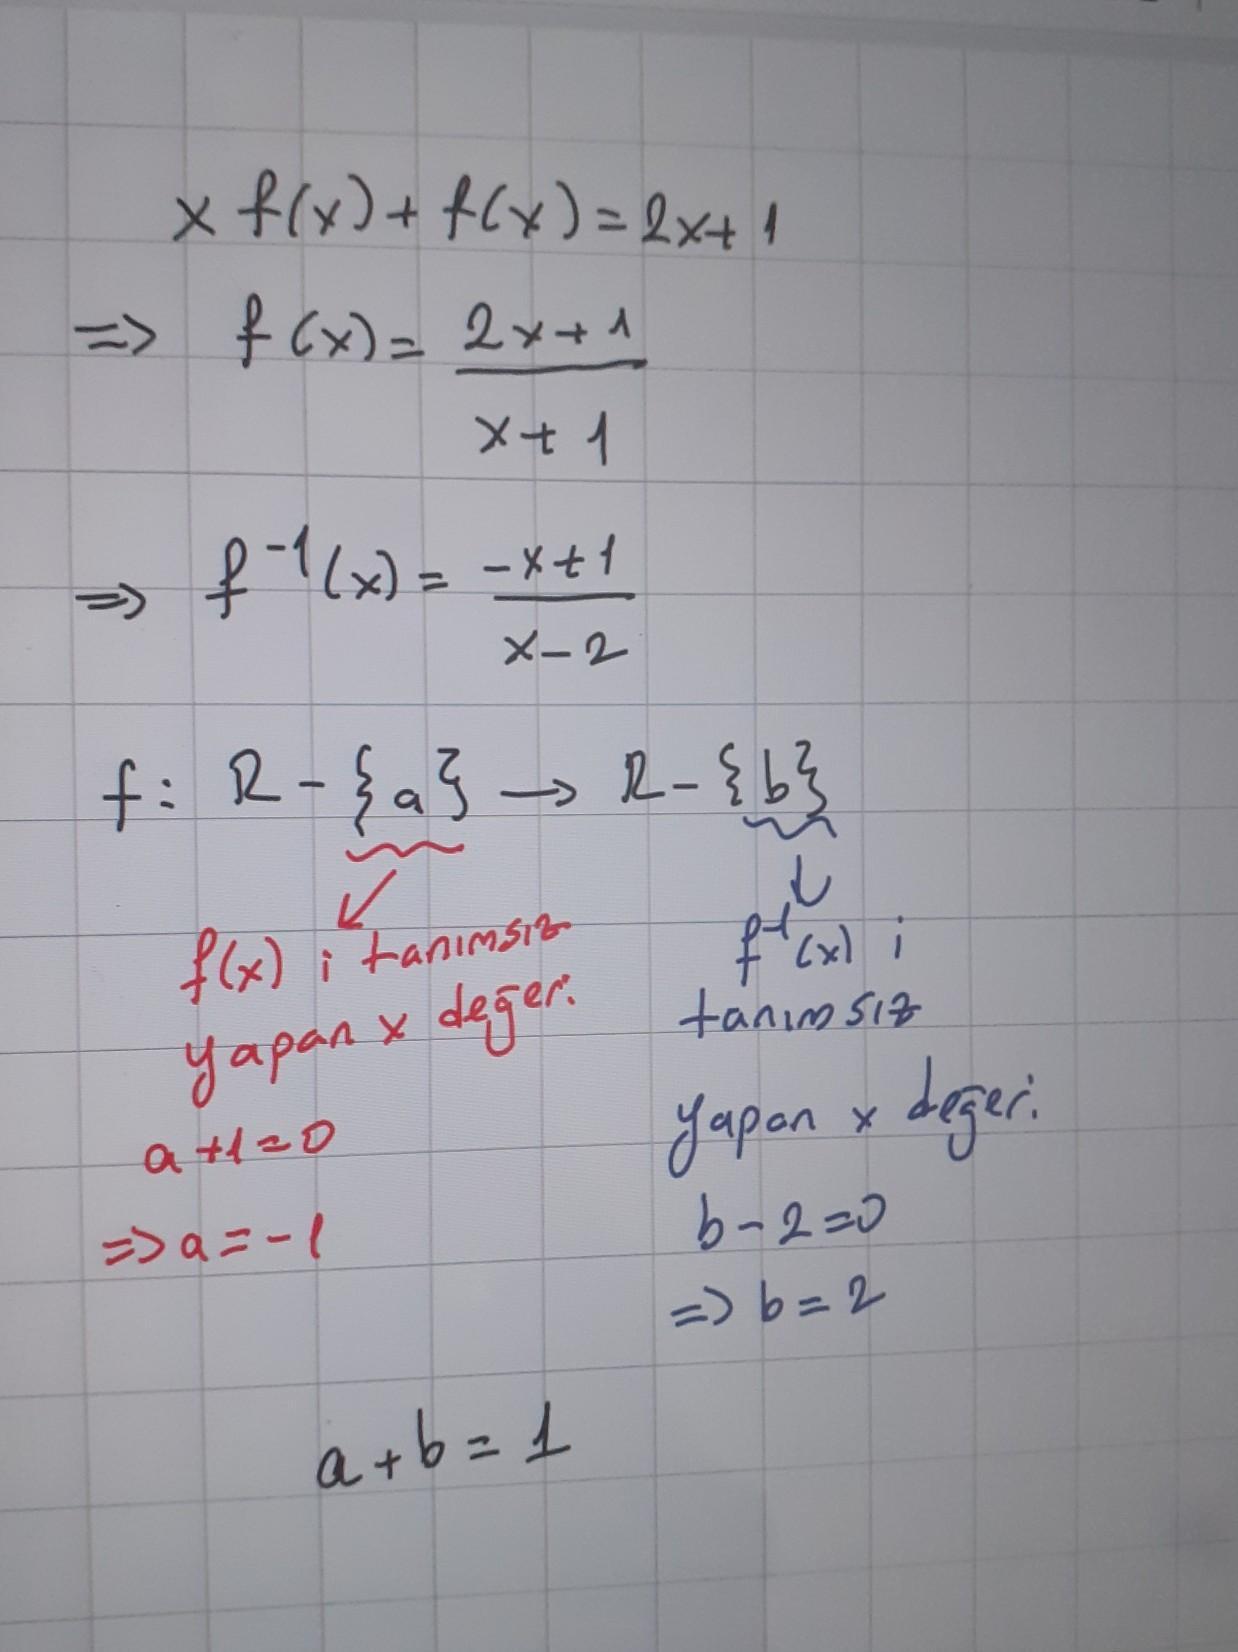 x f(x) + f(x) = 2x + 1
=> f(x) = 2x + 1
x + 1
=> f⁻¹(x) = -x + 1
x - 2
f: R - {a} → R - {b}
f(x) i tanımsız
yapan x değeri.
a + 1 = 0
=> a = -1
f⁻¹(x) i
tanımsız
yapan x değeri.
b - 2 = 0
=> b = 2
a + b = 1